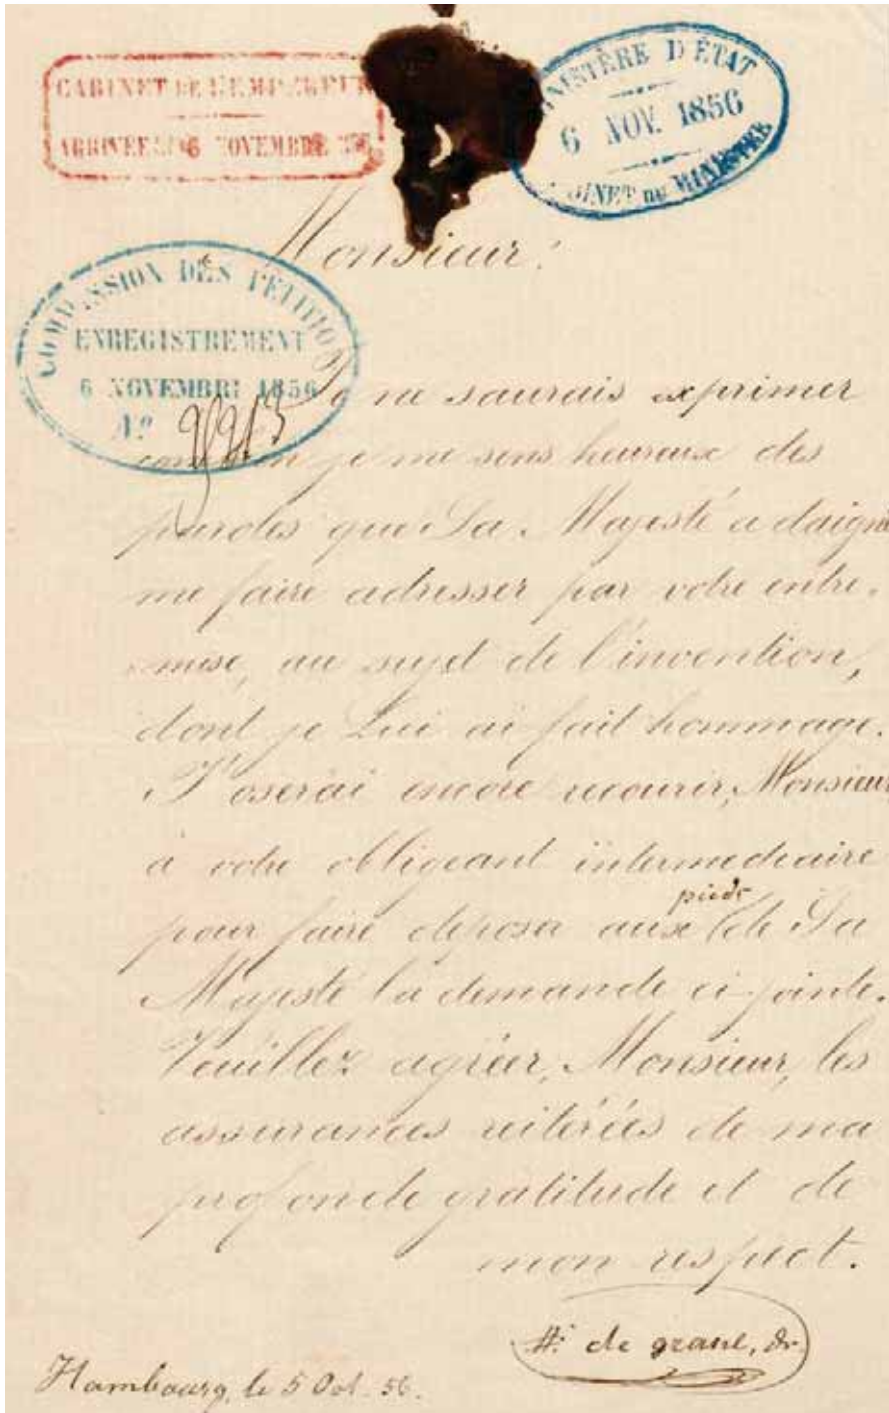 CABINET DE L'EMPEREUR
ARRIVÉE LE 6 NOVEMBRE
MINISTÈRE D'ÉTAT
6 NOV. 1856
CABINET DU MINISTRE
Monsieur!
COMMISSION DES PETITIONS
ENREGISTREMENT
6 NOVEMBRE 1856
Nº
Je ne saurais exprimer
combien je me sens heureux des
paroles que Sa Majesté a daigné
me faire adresser par votre entre-
mise, au sujet de l'invention,
dont je Lui ai fait hommage.
J'oserai encore recourir, Monsieur
à votre obligeant intermediaire
pour faire deposer aux pieds de Sa
Majesté la demande ci-jointe.
Veuillez agréer, Monsieur, les
assurances réitérées de ma
profonde gratitude et de
mon respect.
de graul, dr.
Hambourg, le 5 Oct. 56.